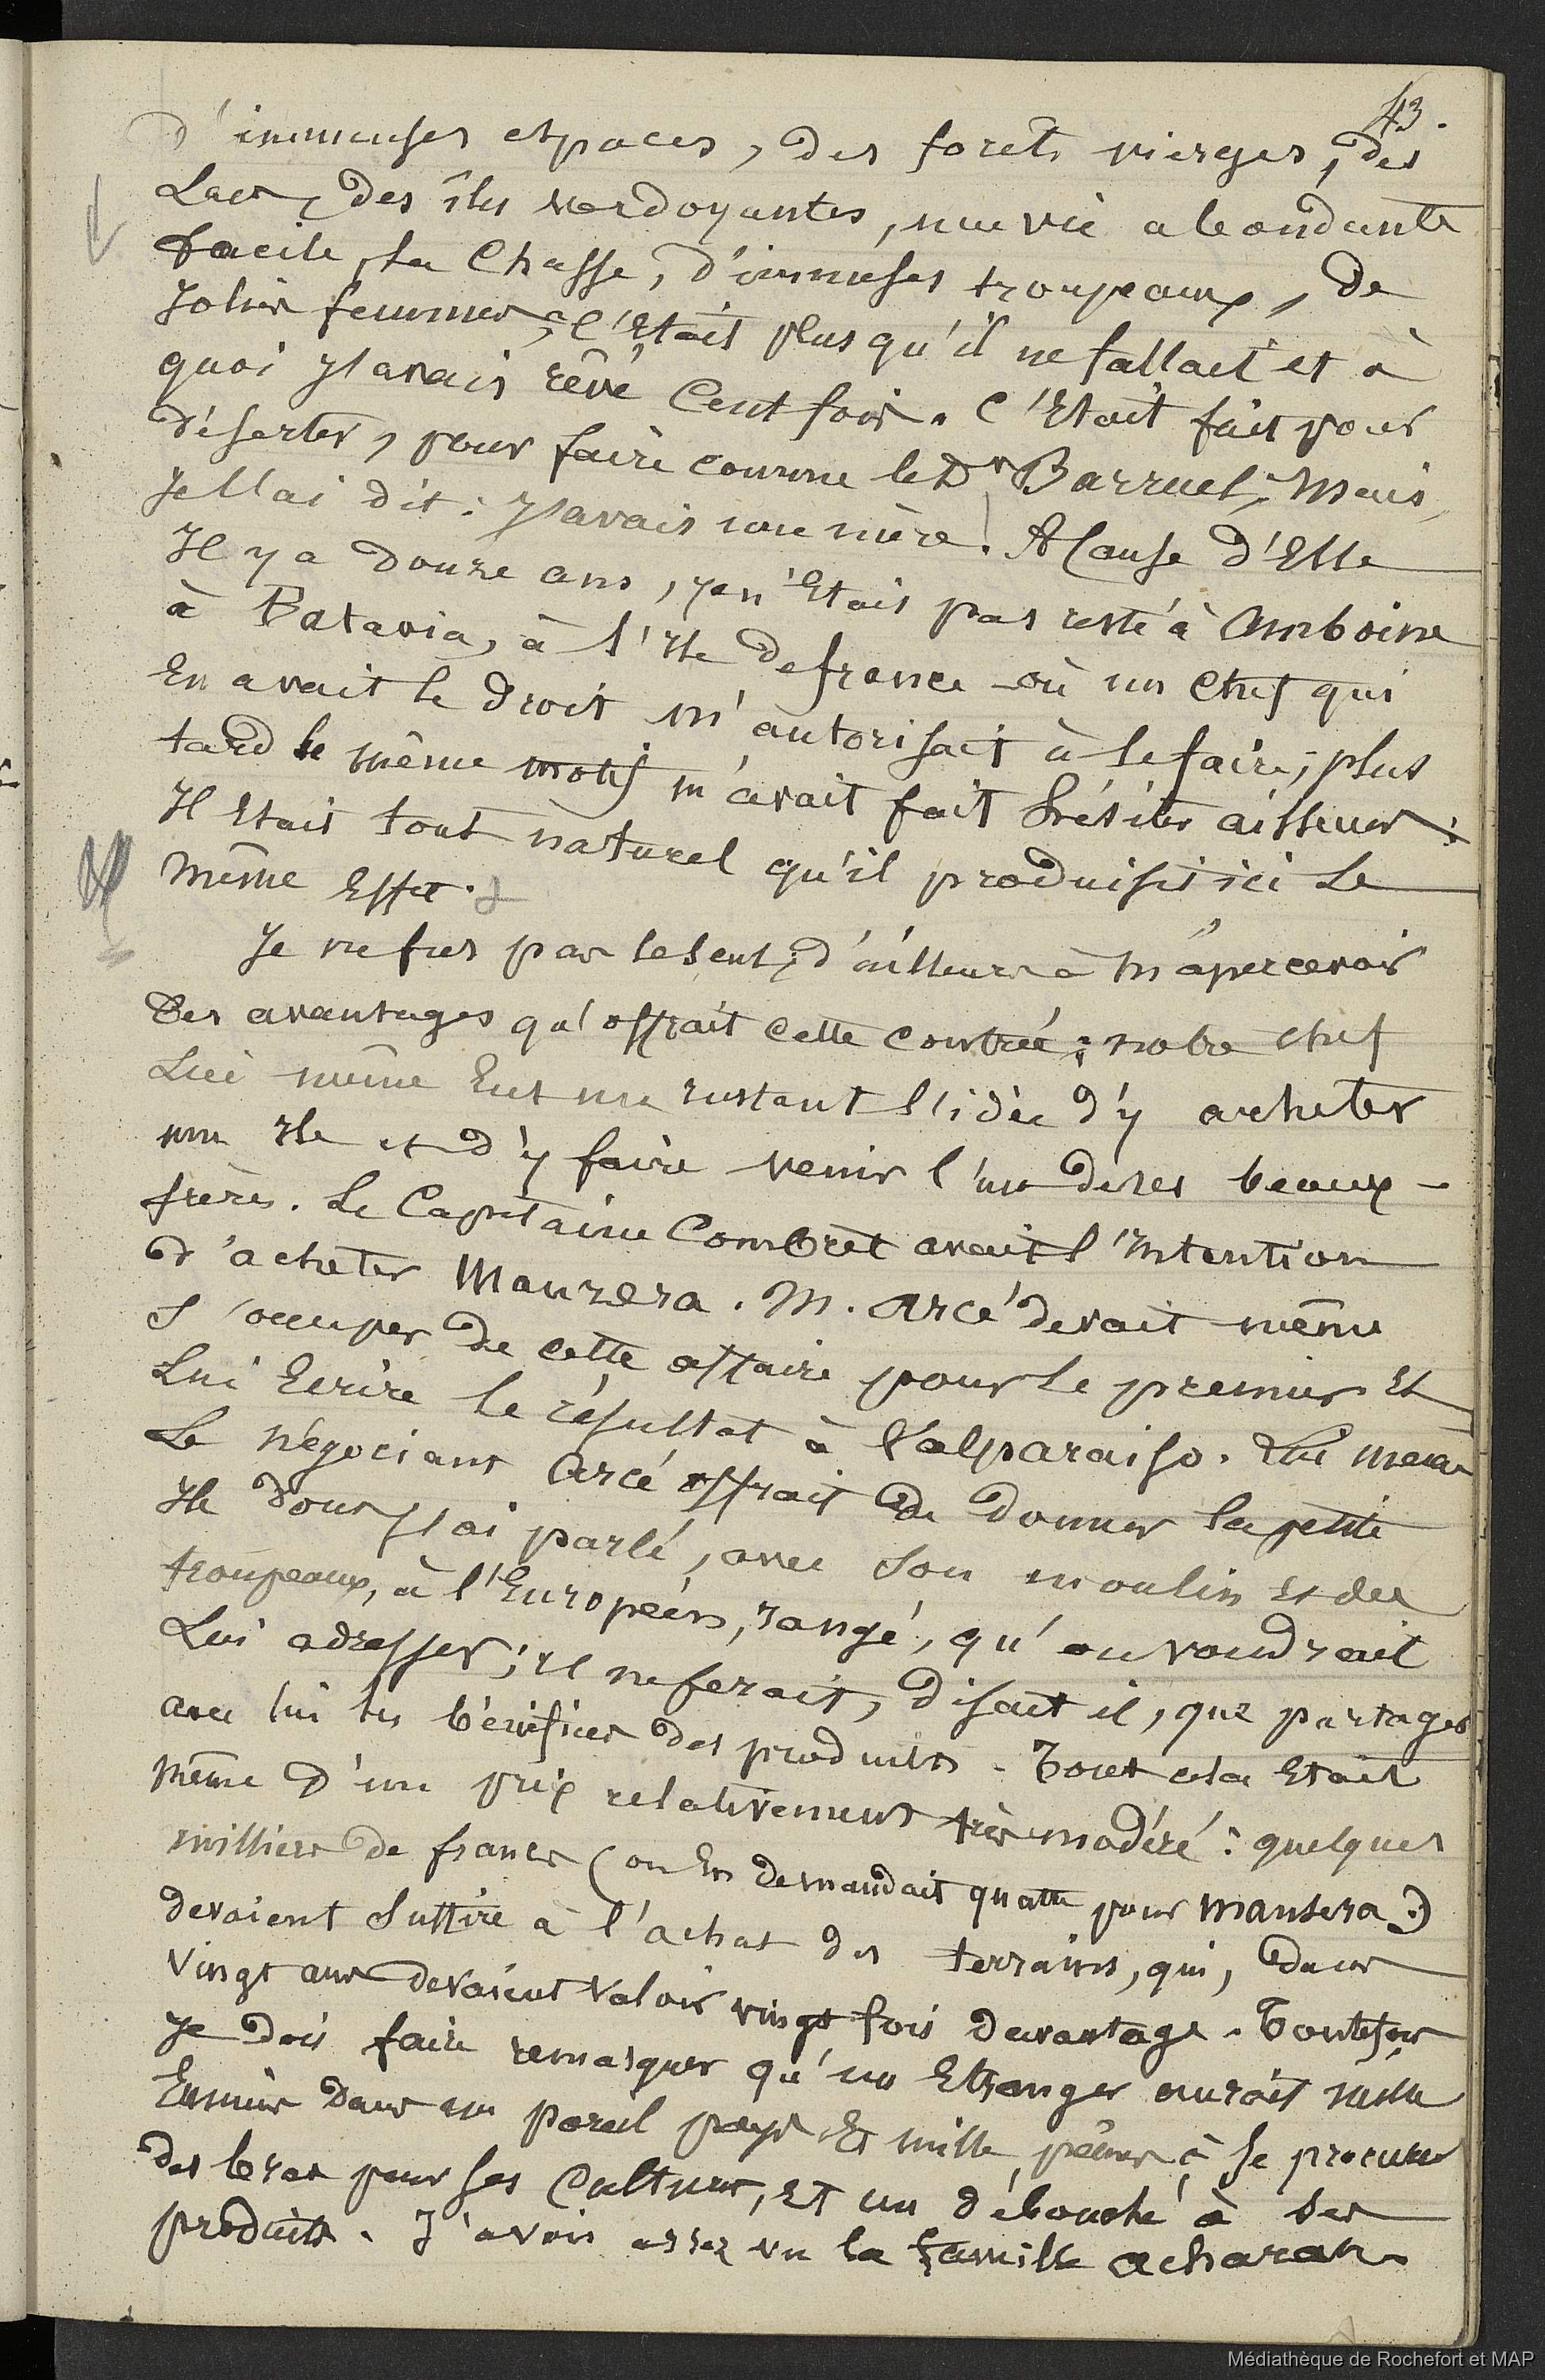 43.
d'immenses espaces, des forêts vierges, des
Lacs, des îles verdoyantes, une vie abondante
facile, la Chasse, d'immenses troupeaux, de
Jolies femmes, c'Etait plus qu'il ne fallait et à
quoi J'avais rêvé Cent fois. C'Etait fait pour
déserter, pour faire comme le Dr Barruel; Mais,
Je l'ai dit: J'avais une mère! A Cause d'Elle
Il y a douze ans, je n'Etais pas resté à Amboine
à Batavia, à l'Ile de france où un Chef qui
En avait le droit m'autorisait à le faire; plus
tard le même motif m'avait fait hésiter ailleurs:
Il Etait tout naturel qu'il produisit ici Le
même Effet.
Je ne fus pas le seul, d'ailleurs à M'apercevoir
Des avantages qu'offrait Cette Contrée; notre Chef
Lui même Eut un instant l'idée d'y acheter
une Ile et d'y faire venir l'un de ses beaux-
frères. Le Capitaine Combret avait l'Intention
d'acheter Manzera. M. Arcé devait même
s'occuper de cette affaire pour Le premier Et
Lui Ecrire le résultat à Valparaiso. Lui même
Le négociant Arcé offrait de donner la petite
Ile dont J'ai parlé, avec Son moulin Et des
troupeaux, à l'Européen, rangé, qu'on voudrait
Lui adresser; il ne ferait, disait il, que partager
avec lui les bénéfices des produits. Tout cela Etait
même d'un prix relativement très modéré: quelques
milliers de francs (on En demandait quatre pour Mansera.)
devaient Suffire à l'achat des terrains, qui, dans
Vingt ans devaient Valoir vingt fois davantage. Toutefois
Je dois faire remarquer qu'un Etranger aurait mille
Ennuis dans un pareil pays Et mille peines à se procurer
des bras pour ses Cultures, Et un débouché à Ses
produits. J'avais assez vu la famille acharan-
Médiathèque de Rochefort et MAP